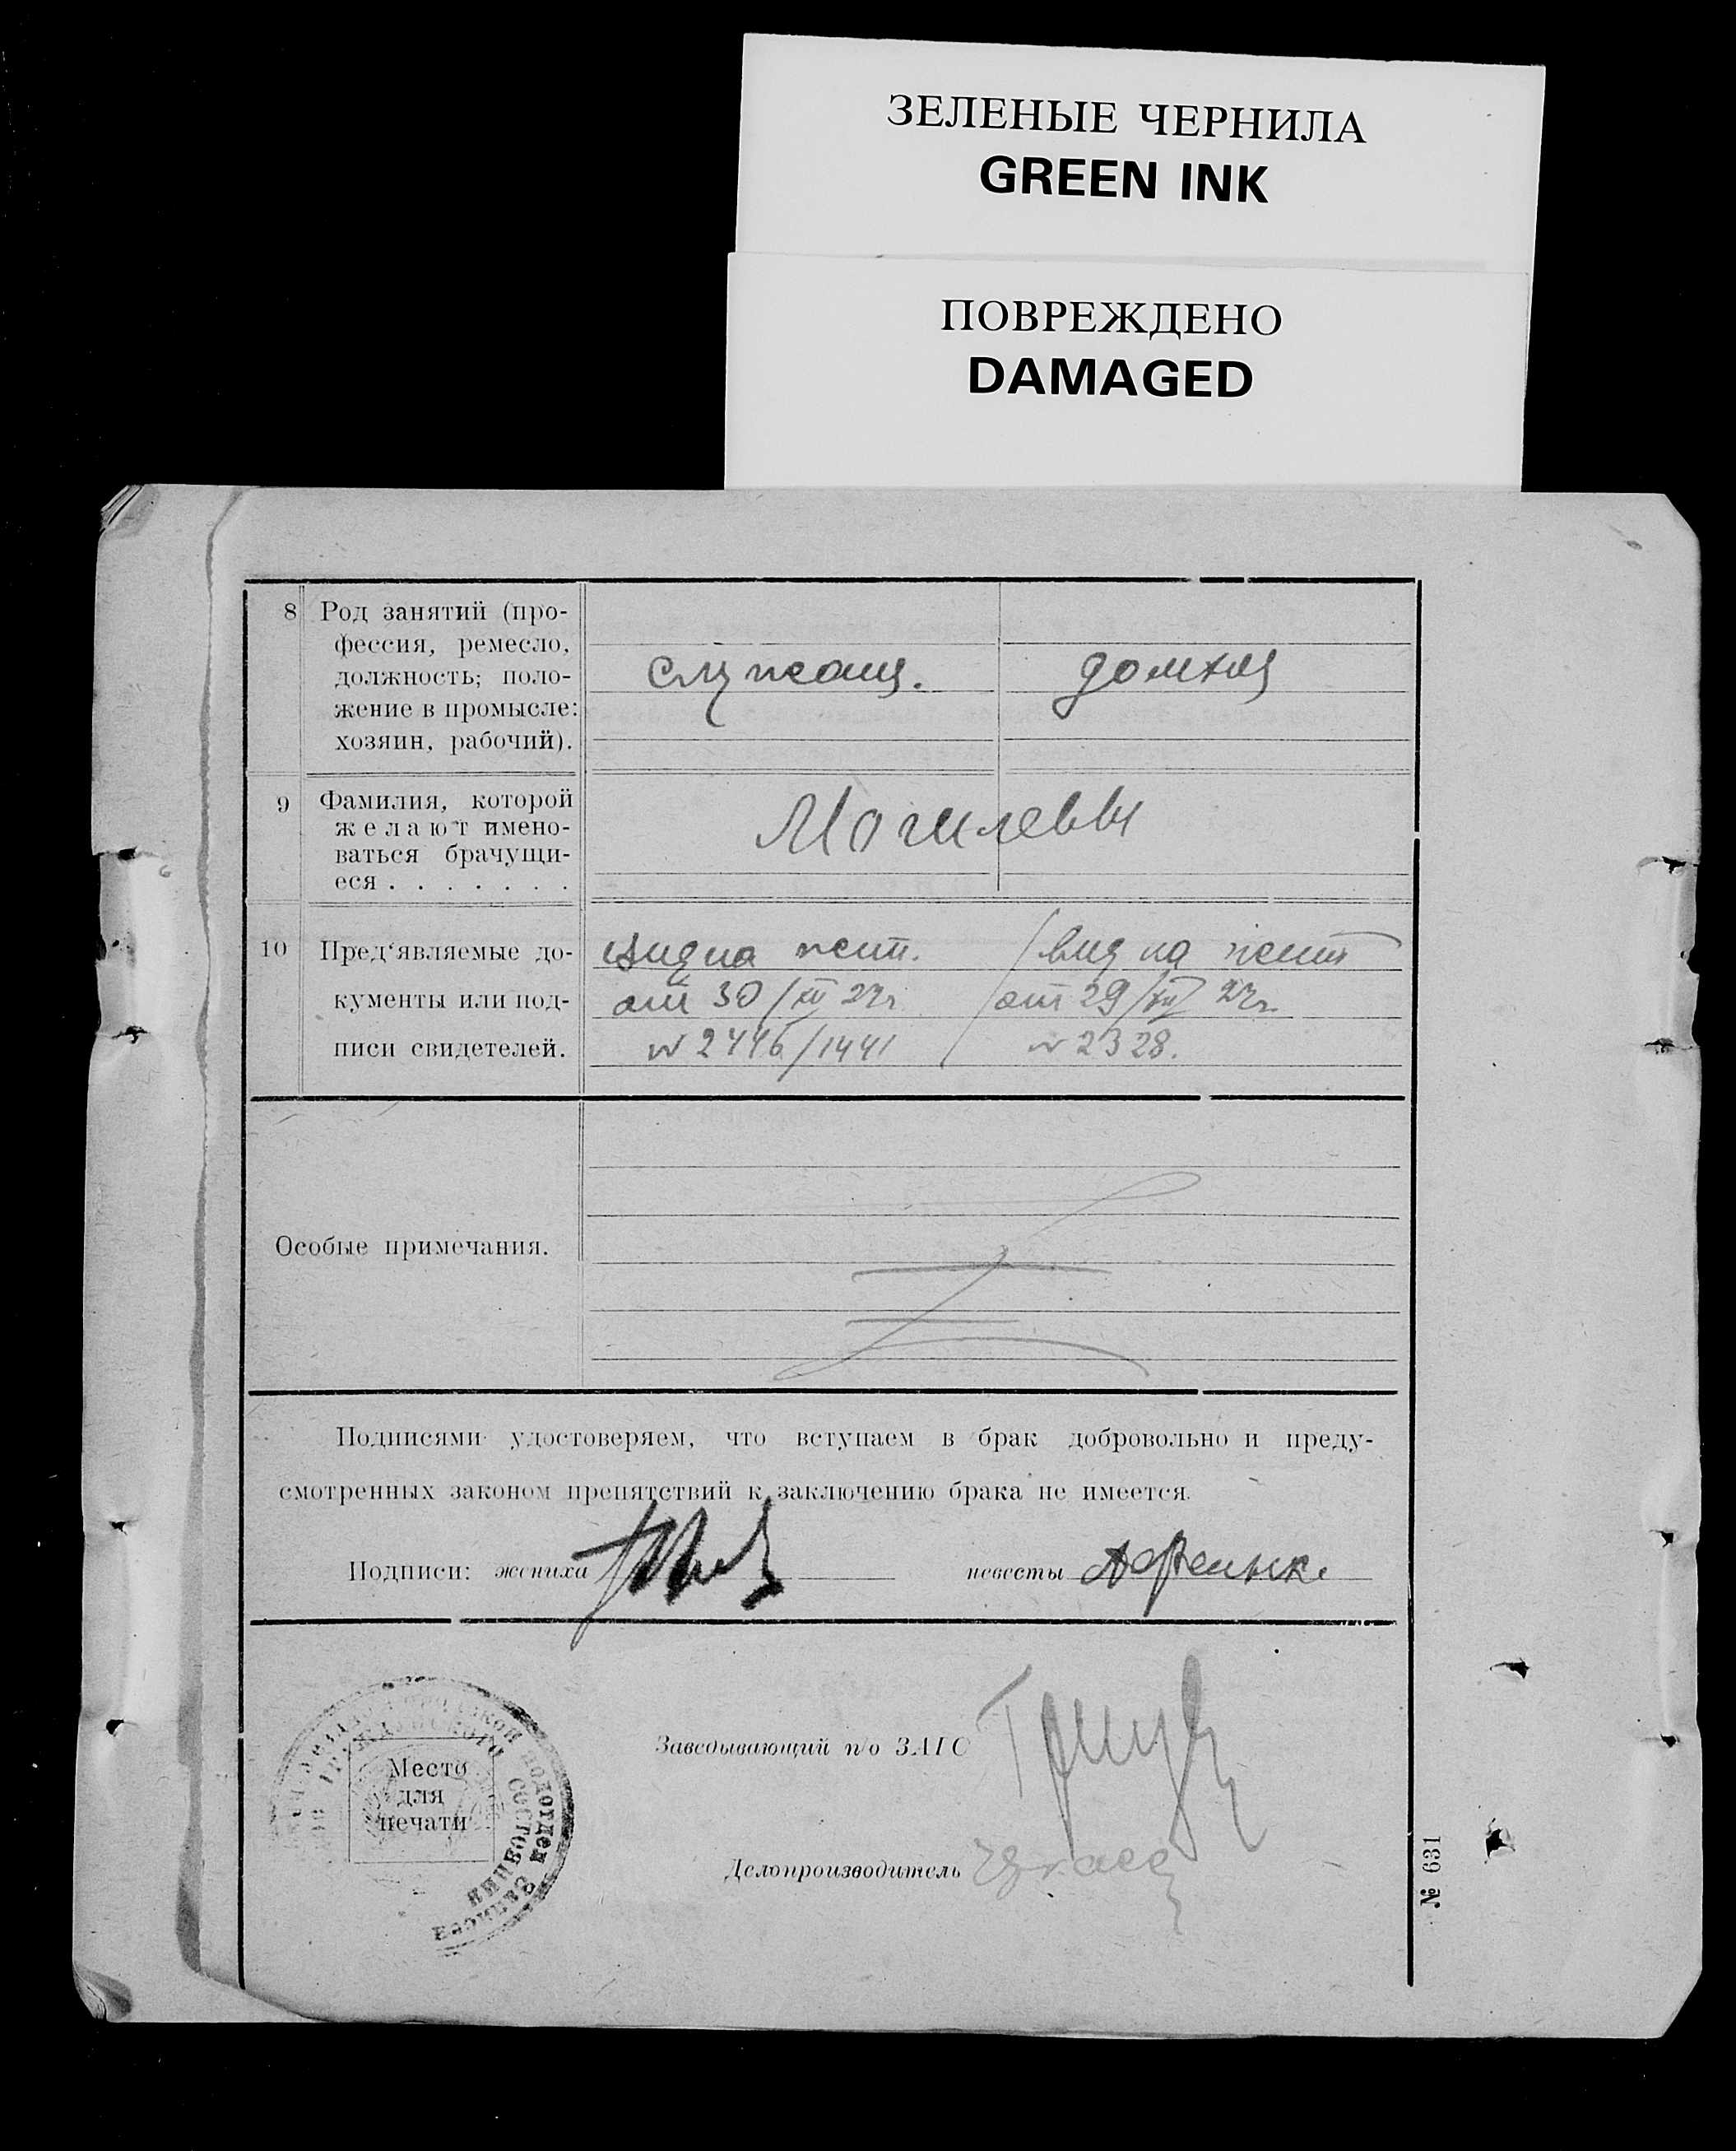 ЗЕЛЕНЫЕ ЧЕРНИЛА
GREEN INK
ПОВРЕЖДЕНО
DAMAGED
8 Род занятий (про-
фессия, ремесло,
должность; поло-
жение в промысле:
хозяин, рабочий).
служащ. домхоз
9 Фамилия, которой
желают имено-
ваться брачущи-
еся . . . . . . .
Могилевы
10 Пред‘являемые до-
кументы или под-
писи свидетелей.
вид на жит. / вид на жит
от 30/ 27г /от 29/ 27г.
№ 2446/1441 № 2328.
Особые примечания.
Подписями удостоверяем, что вступаем в брак добровольно и преду-
смотренных законом препятствий к заключению брака не имеется.
Подписи: жениха невесты
Заведывающий п/о ЗАГС
Делопроизводитель
Место
для
печати
подотдел записи
гражданского состояния
№ 631